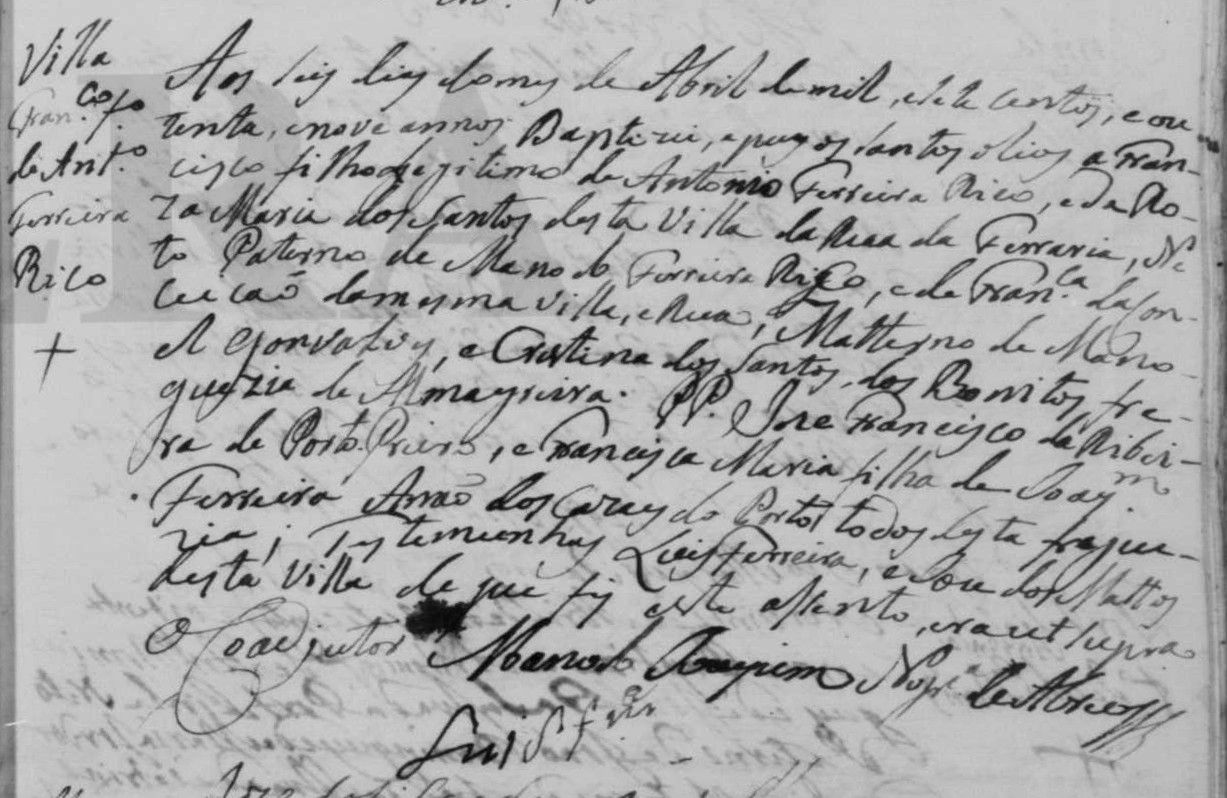 Villa
Fran.co f.o
de Ant.o
Ferreira
Rico
Aos seis dias do mes de Abril de mil, e sete centos, e oi
tenta, e nove annos Baptizei, e puz os santos olios a Fran-
cisco filho legitimo de Antonio Ferreira Rico, e da Ro-
za Maria dos Santos desta Villa da Rua da Ferraria, Ne
to Paterno de Manoel Ferreira Rico, e de Fran.ca da Con-
ceicaõ da mesma Villa, e Rua, Matterno de Mano-
el Gonsalves, e Cristina dos Santos, dos Bonitos, fre-
guezia de Almagreira. PP. Joze Francisco da Ribei-
ra de Porto, e Francisca Maria filha de Joaq.m
Ferreira dos Cazaes do Porto todos desta fregue-
zia; Testemunhas Luis Ferreira, e Joze dos Mattos
desta Villa de que fiz este assento, era ut supra
O Coadjutor Manoel Joaquim de Abreu
Luis Frr.a
ERA